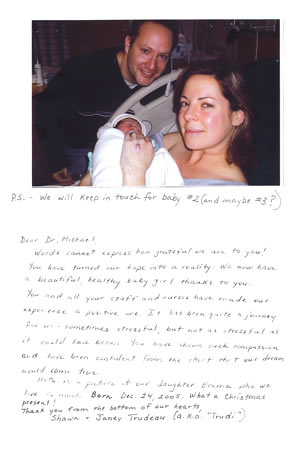 P.S. - We will keep in touch for baby #2 (and maybe #3?)
Dear Dr. Michael,
Words cannot express how grateful we are to you!
You have turned our hope into a reality. We now have
a beautiful, healthy baby girl thanks to you.
You and all your staff and nurses have made our
experience a positive one. It has been quite a journey
for us - sometimes stressful, but not as stressful as
it could have been. You have shown such compassion
and have been confident from the start that our dream
would come true.
Here is a picture of our daughter Emma who we
love so much. Born Dec. 24, 2005. What a Christmas
present!
Thank you from the bottom of our hearts,
Shawn + Janey Trudeau (a.k.a. "Trudi")